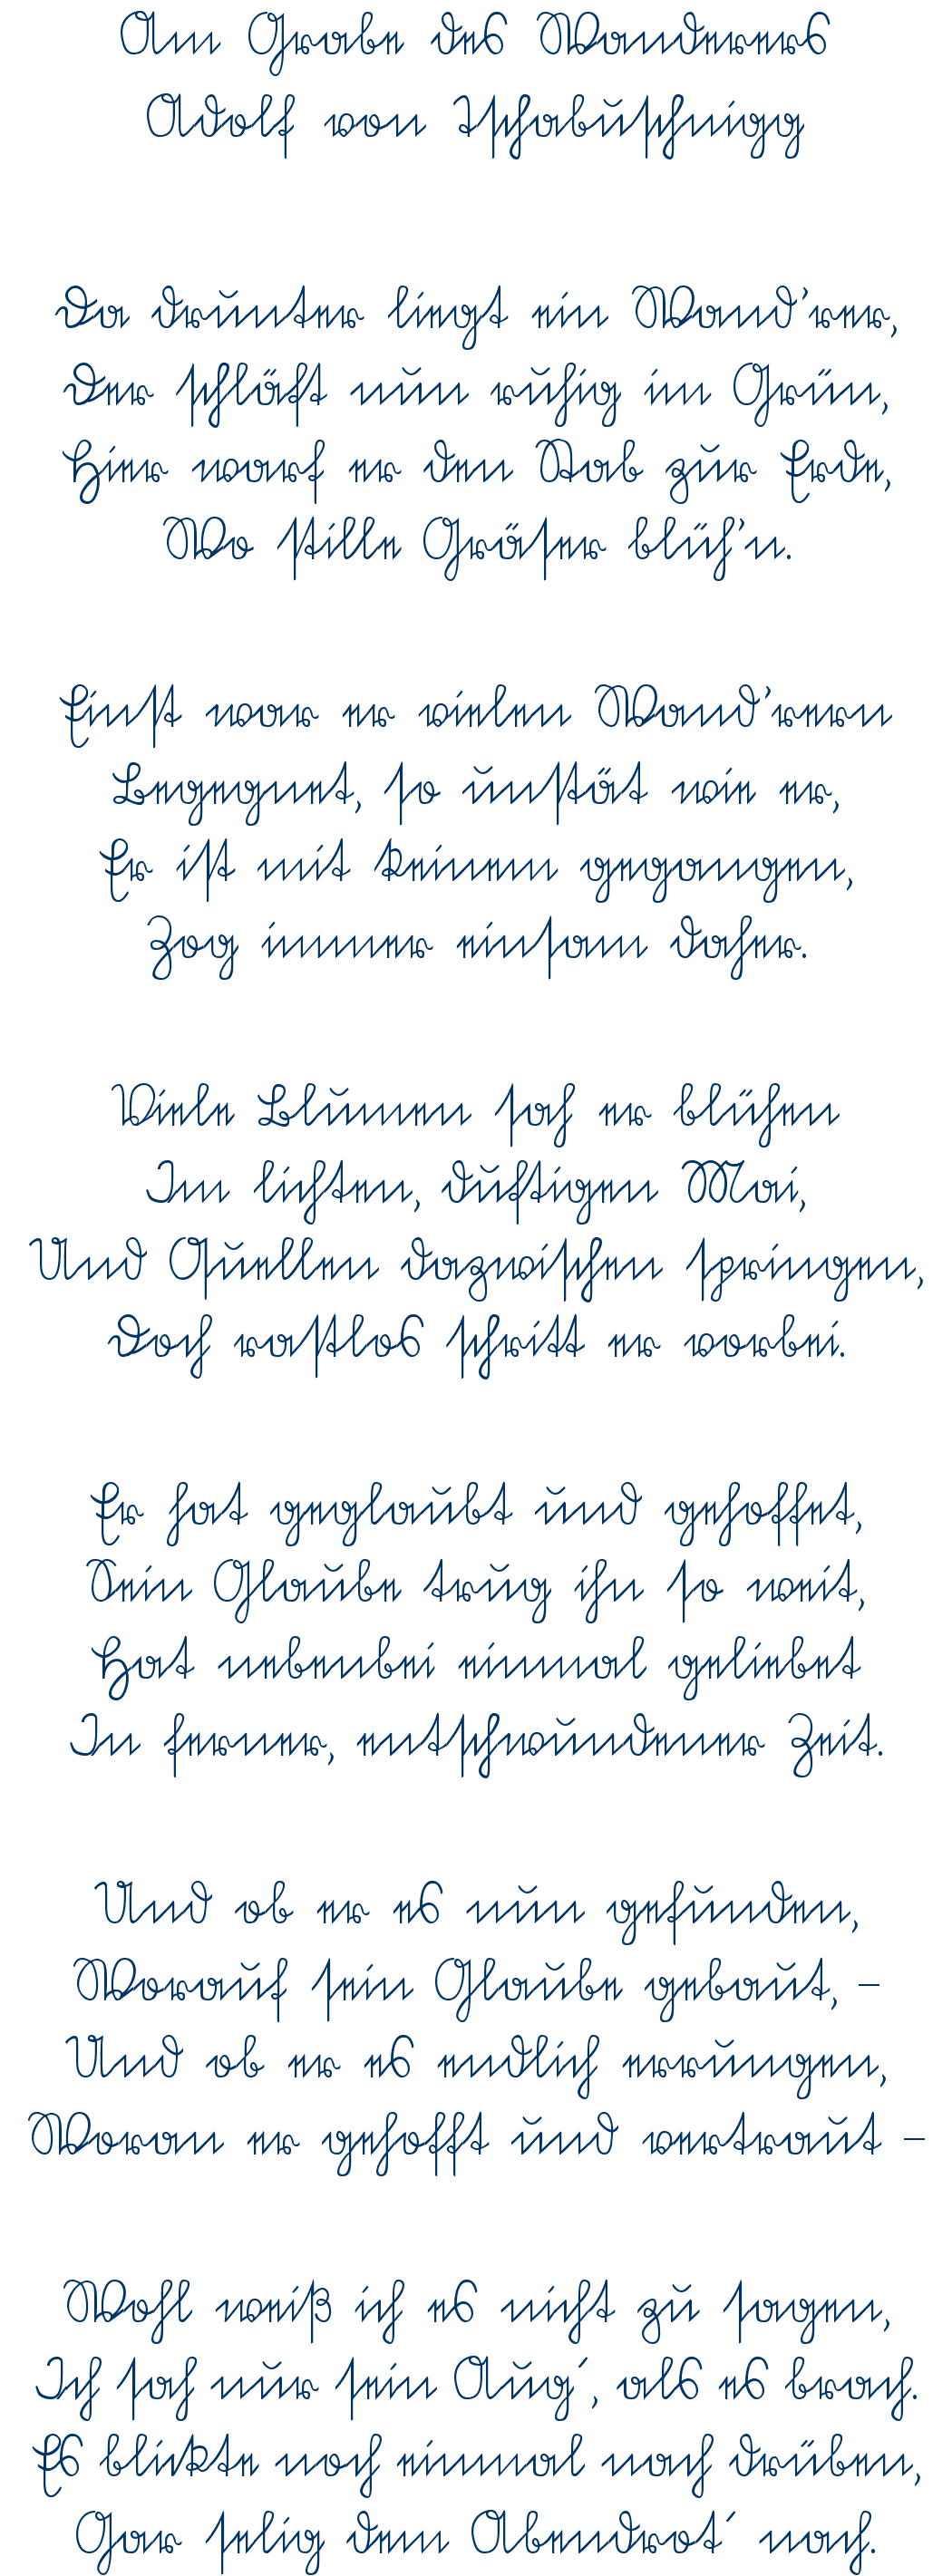 Am Grabe des Wanderers
Adolf von Tschabuschnigg
Da drunter liegt ein Wand'rer,
Der schläft nun ruhig im Grün,
Hier warf er den Stab zur Erde,
Wo stille Gräser blüh'n.
Einst war er vielen Wand'rern
Begegnet, so unstät wie er,
Er ist mit keinem gegangen,
Zog immer einsam daher.
Viele Blumen sah er blühen
Im lichten, duftigen Mai,
Und Quellen dazwischen springen,
Doch rastlos schritt er vorbei.
Er hat geglaubt und gehoffet,
Sein Glaube trug ihn so weit,
Hat nebenbei einmal geliebet
In ferner, entschwundener Zeit.
Und ob er es nun gefunden,
Worauf sein Glaube gebaut, –
Und ob er es endlich errungen,
Woran er gehofft und vertraut –
Wohl weiß ich es nicht zu sagen,
Ich sah nur sein Aug´, als es brach.
Es blickte noch einmal nach drüben,
Gar selig dem Abendrot´ nach.